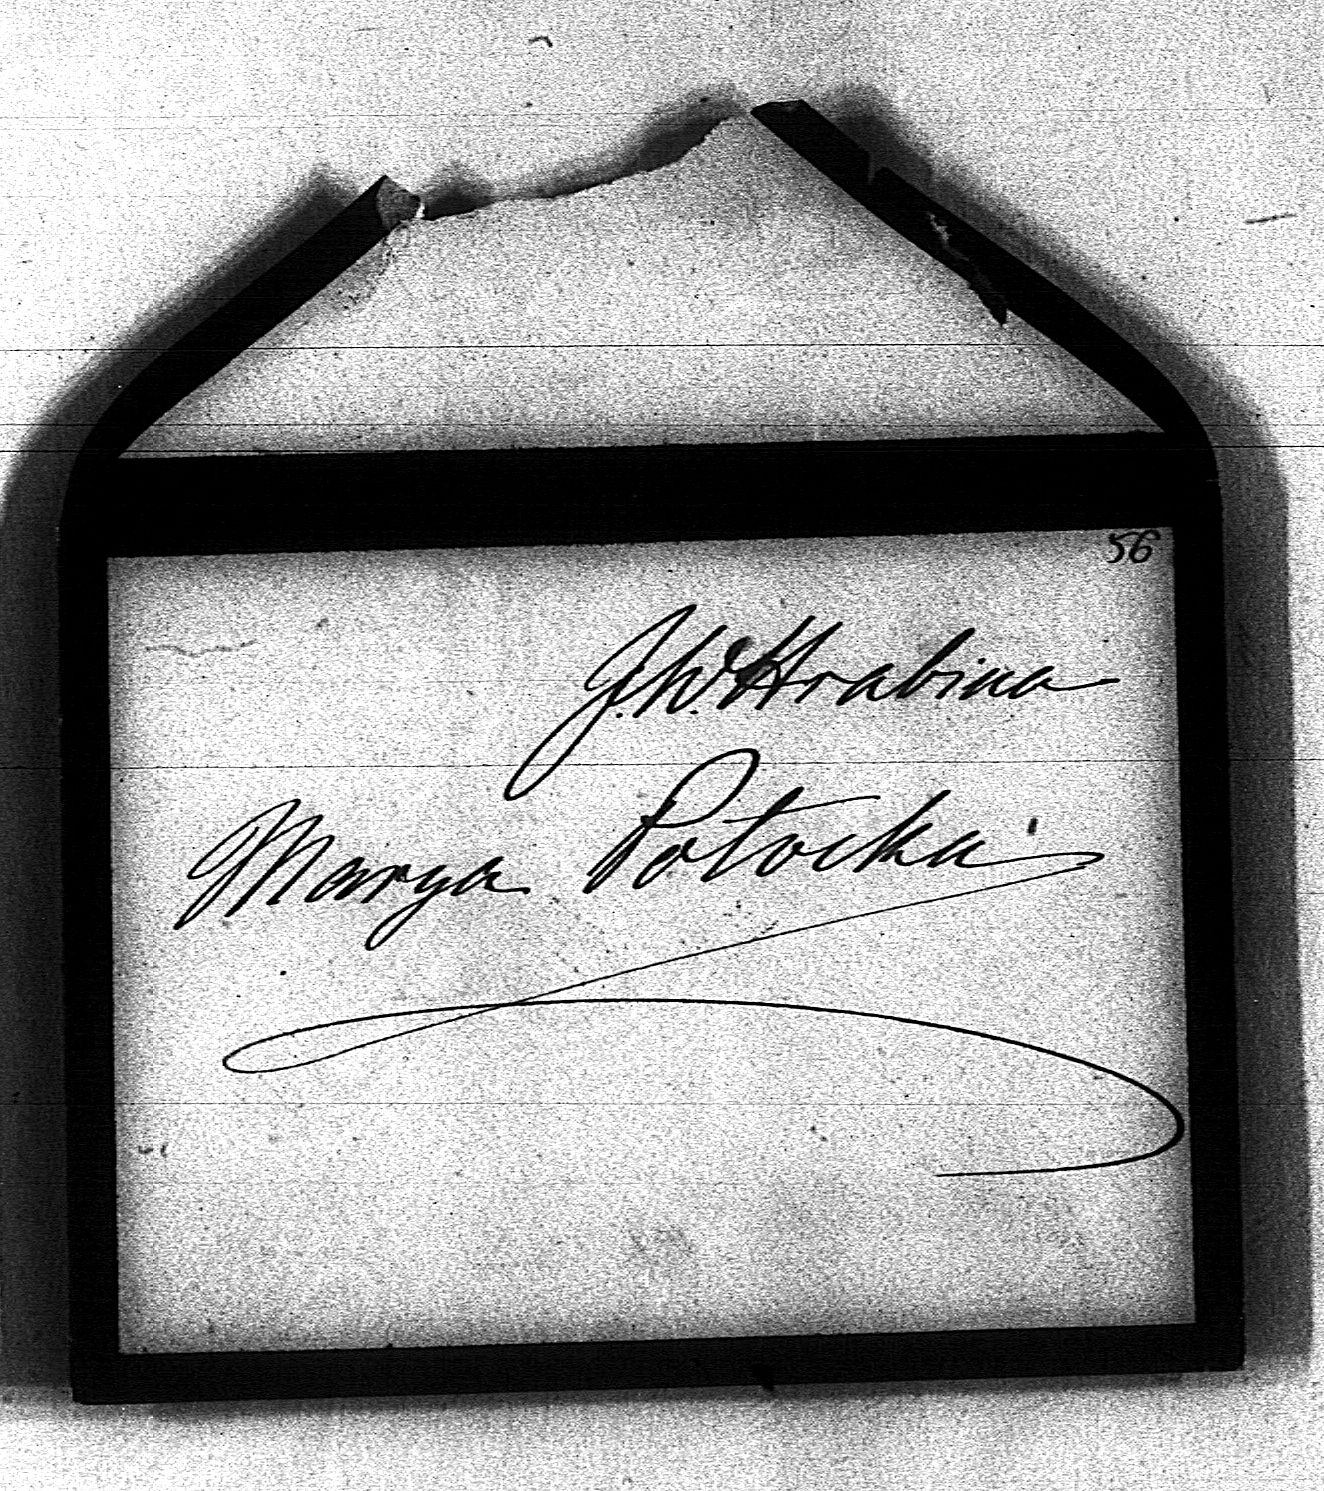 56
J.W. Hrabina
Marya Potocka.